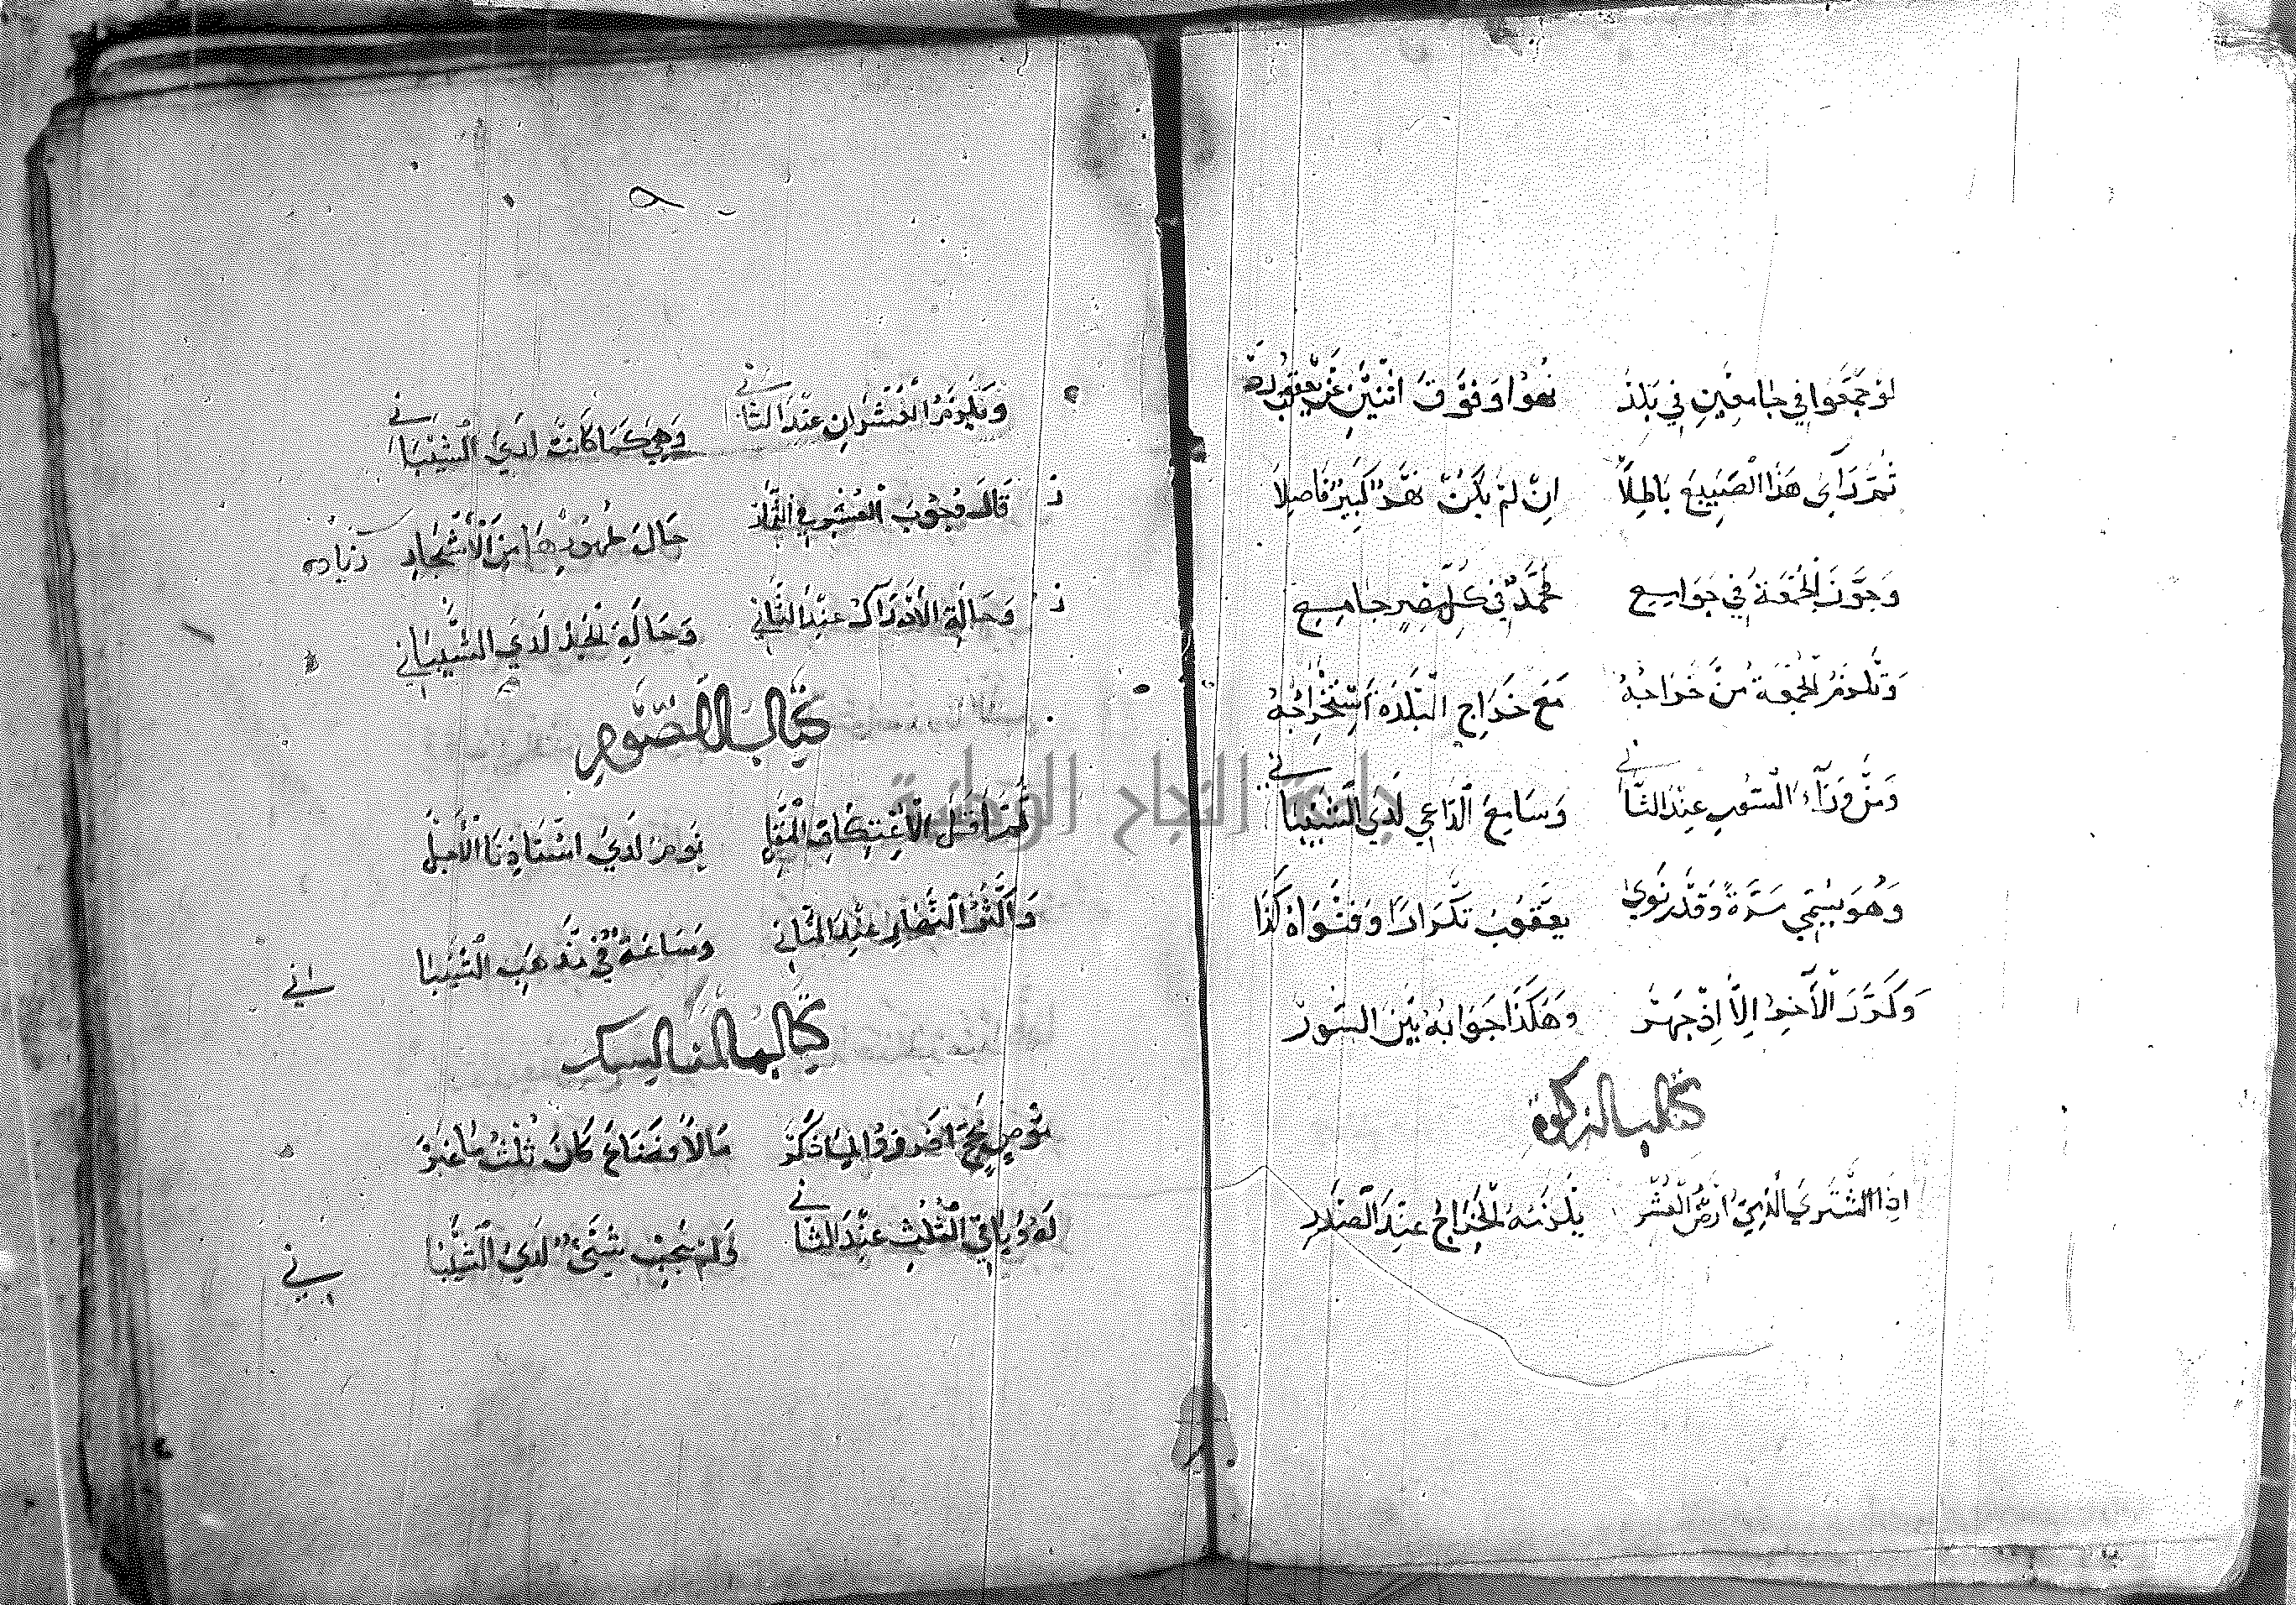 لَوْ جَمَّعُوا فِي جَامِعَيْنِ فِي بَلَدْ نَهَوْا وَفَوْقَ اثْنَيْنِ عَنْ يعقوب رد
ثُمَّ رَأَى هَذَا الصَّنِيعَ بَاطِلًا اِنْ لَمْ يَكُنْ نَهْرٌ كَبِيرٌ فَاصِلا
وَجَوَّزَ الْجُمْعَةَ فِي جَوَامِعِ مُحَمَّدٌ فِي كُلِّ مِصْرٍ جَامِعِ
وَتَلْزَمُ الْجُمْعَةُ مَنْ خَرَاجُهُ مَعَ خَرَاجِ الْبَلْدَةِ اسْتِخْرَاجُهُ
وَمَنْ وَرَآءَ السُّورِ عِنْدَ الثَّانِي وَسَامِعُ الدَّاعِي لَدَى الشَّيْبَانِي
وَهُوَ يُسَمِّي مَرَّةً وَقَدْ نَوَى يَعْقُوبُ تَكْرَارًا وَفَتْوَاهُ كَذَا
وَكَرَّرَ الْآخِرُ اِلَّا اِذْ جَهَرْ وَهَكَذَا جَوَابُهُ بَيْنَ السُّوَرْ
كتاب الزكوة
اِذَا اشْتَرَى الذِّمِّيُّ اَرْضَ الْعُشْرِ يَلْزَمُهُ الْخَرَاجُ عِنْدَ الصَّدْرِ
وَيَلْزَمُ الْعُشْرَانِ عِنْدَ الثَّانِي وَهِيَ كَمَا كَانَتْ لَدَى الشَّيْبَانِي
قَالَ وُجُوبُ الْعُشْرِ فِي الثِّمَارِ حَالَ ظُهُورِهَا مِنَ الْأَشْجَارِ
وَحَالَةَ الْاِدْرَاكِ عِنْدَ الثَّانِي وَحَالَةَ الْجَذِّ لَدَى الشَّيْبَانِي
كتاب الصوم
ثُمَّ اَقَلُّ الْاِعْتِكَافِ النَّفْلِ يَوْمٌ لَدَى اُسْتَاذِنَا الْأَجَلِّ
وَاَكْثَرُ النَّهَارِ عِنْدَ الثَّانِي وَسَاعَةٌ فِي مَذْهَبِ الشَّيْبَانِي
كتاب المناسك
مَالًا فَضَاعَ كَانَ ثُلْثُ مَا غَبَرْ
لَهُ وَبَاقِي الثُّلْثِ عِنْدَ الثَّانِي وَلَمْ يَجِبْ شَيْءٌ لَدَى الشَّيْبَانِي
جامعة النجاح الوطنية